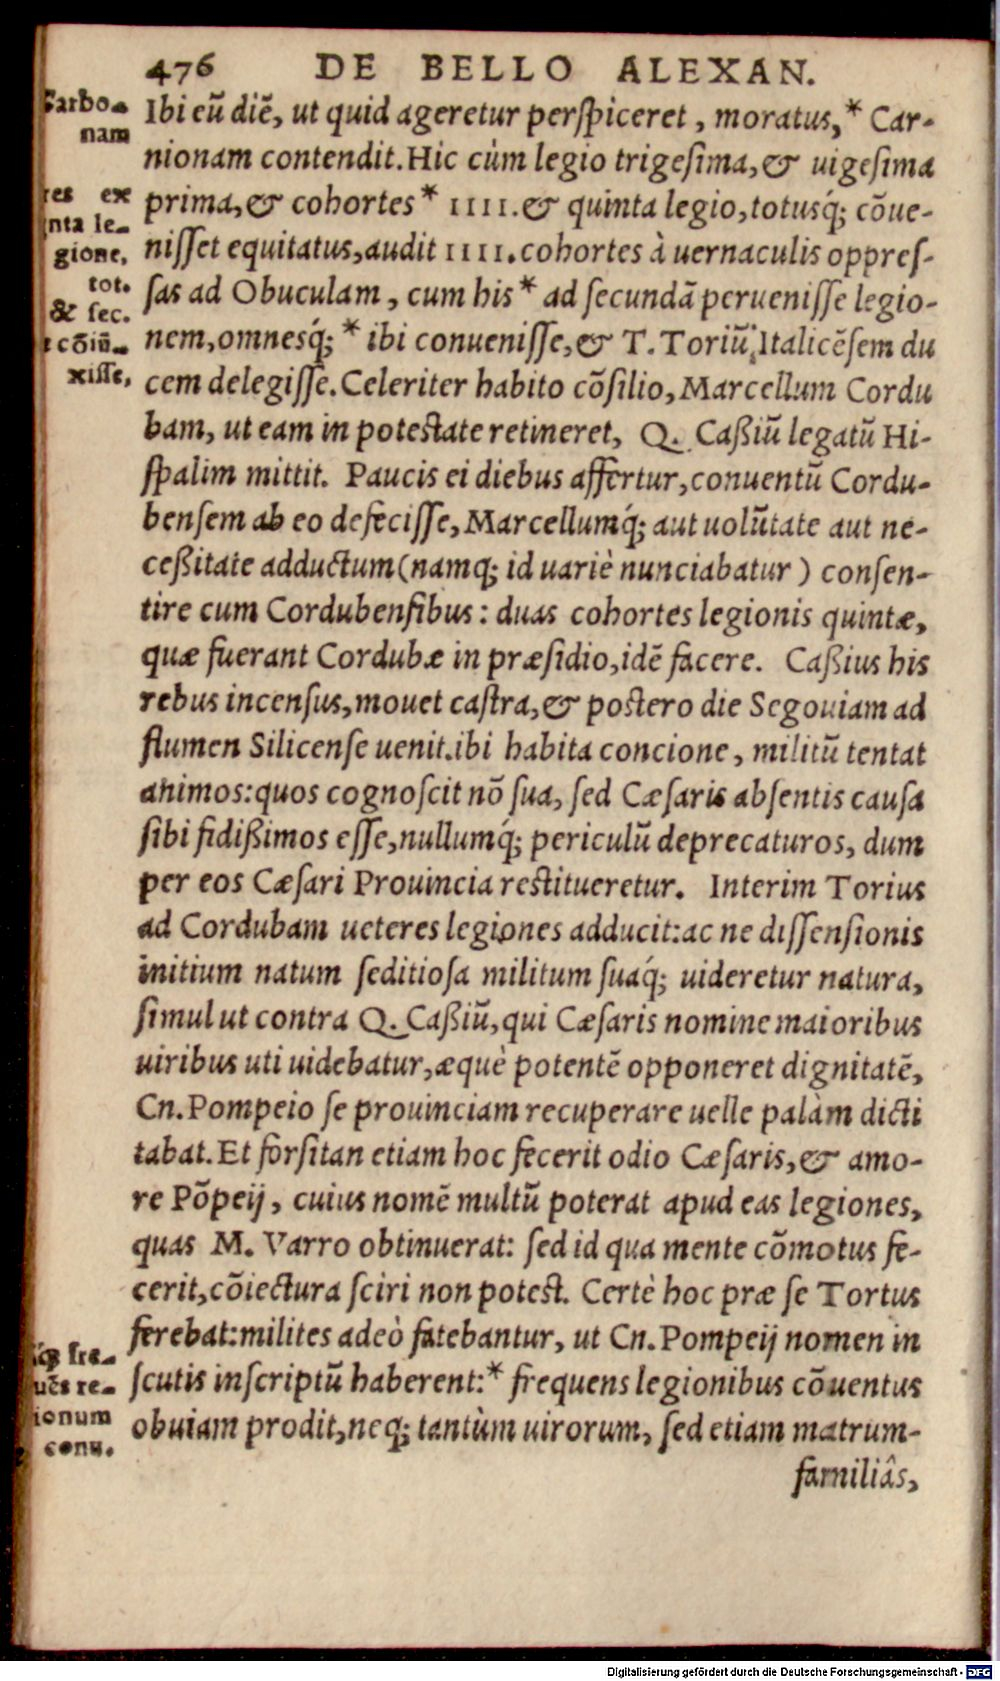 476 DE BELLO ALEXAN.
Ibi eũ diẽ, ut quid ageretur perſpiceret, moratus,* Car-
nionam contendit. Hic cùm legio trigeſima, & uigeſima
prima, & cohortes* IIII. & quinta legio, totusq́; cõue-
niſſet equitatus, audit IIII. cohortes à uernaculis oppreſ-
ſas ad Obuculam, cum his* ad ſecundã perueniſſe legio-
nem, omnesq́;* ibi conueniſſe, & T. Toriũ Italicẽſem du
cem delegiſſe. Celeriter habito cõſilio, Marcellum Cordu
bam, ut eam in poteſtate retineret, Q. Caßiũ legatũ Hi-
ſpalim mittit. Paucis ei diebus affertur, conuentũ Cordu-
benſem ab eo defeciſſe, Marcellumq́; aut uolũtate aut ne-
ceßitate adductum (namq; id uariè nunciabatur) conſen-
tire cum Cordubenſibus: duas cohortes legionis quintæ,
quæ fuerant Cordubæ in præſidio, idẽ facere. Caßius his
rebus incenſus, mouet caſtra, & poſtero die Segouiam ad
flumen Silicenſe uenit. ibi habita concione, militũ tentat
animos: quos cognoſcit nõ ſua, ſed Cæſaris abſentis cauſa
ſibi fidißimos eſſe, nullumq́; periculũ deprecaturos, dum
per eos Cæſari Prouincia reſtitueretur. Interim Torius
ad Cordubam ueteres legiones adducit: ac ne diſſenſionis
initium natum ſeditioſa militum ſuaq́; uideretur natura,
ſimul ut contra Q. Caßiũ, qui Cæſaris nomine maioribus
uiribus uti uidebatur, æquè potentẽ opponeret dignitatẽ,
Cn. Pompeio ſe prouinciam recuperare uelle palàm dicti
tabat. Et forſitan etiam hoc fecerit odio Cæſaris, & amo-
re Põpeij, cuius nomẽ multũ poterat apud eas legiones,
quas M. Varro obtinuerat: ſed id qua mente cõmotus fe-
cerit, cõiectura ſciri non poteſt. Certè hoc præ ſe Tortus
ferebat: milites adeò fatebantur, ut Cn. Pompeij nomen in
ſcutis inſcriptũ haberent:* frequens legionibus cõuentus
obuiam prodit, neq; tantùm uirorum, ſed etiam matrum-
familiâs,
Carbo-
nam
res ex
nta le-
gione,
tot.
& ſec.
cõiũ-
xiſſe,
q́; fre-
uẽs re-
ionum
conu.
Digitalisierung gefördert durch die Deutsche Forschungsgemeinschaft - DFG